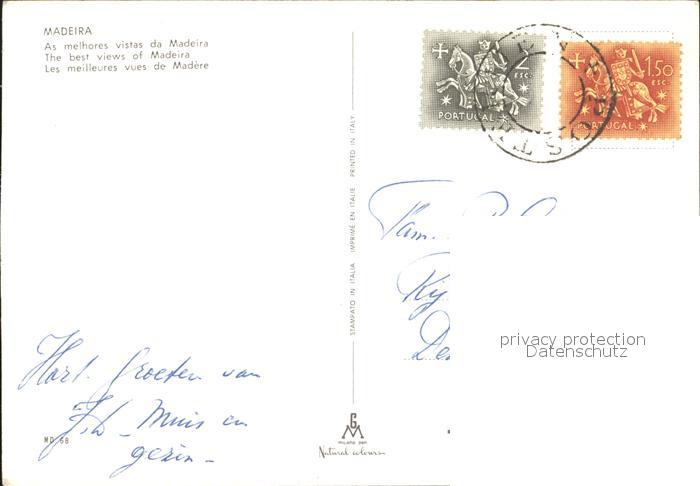 MADEIRA
As melhores vistas da Madeira
The best views of Madeira
Les meilleures vues de Madère
2 ESC.
PORTUGAL
1,50 ESC.
PORTUGAL
STAMPATO IN ITALIA IMPRIMÉ EN ITALIE PRINTED IN ITALY
Fam.
privacy protection
Datenschutz
Hart. Groeten van
Muis en
gezin
MD 68
GM
MILANO
Natural colours